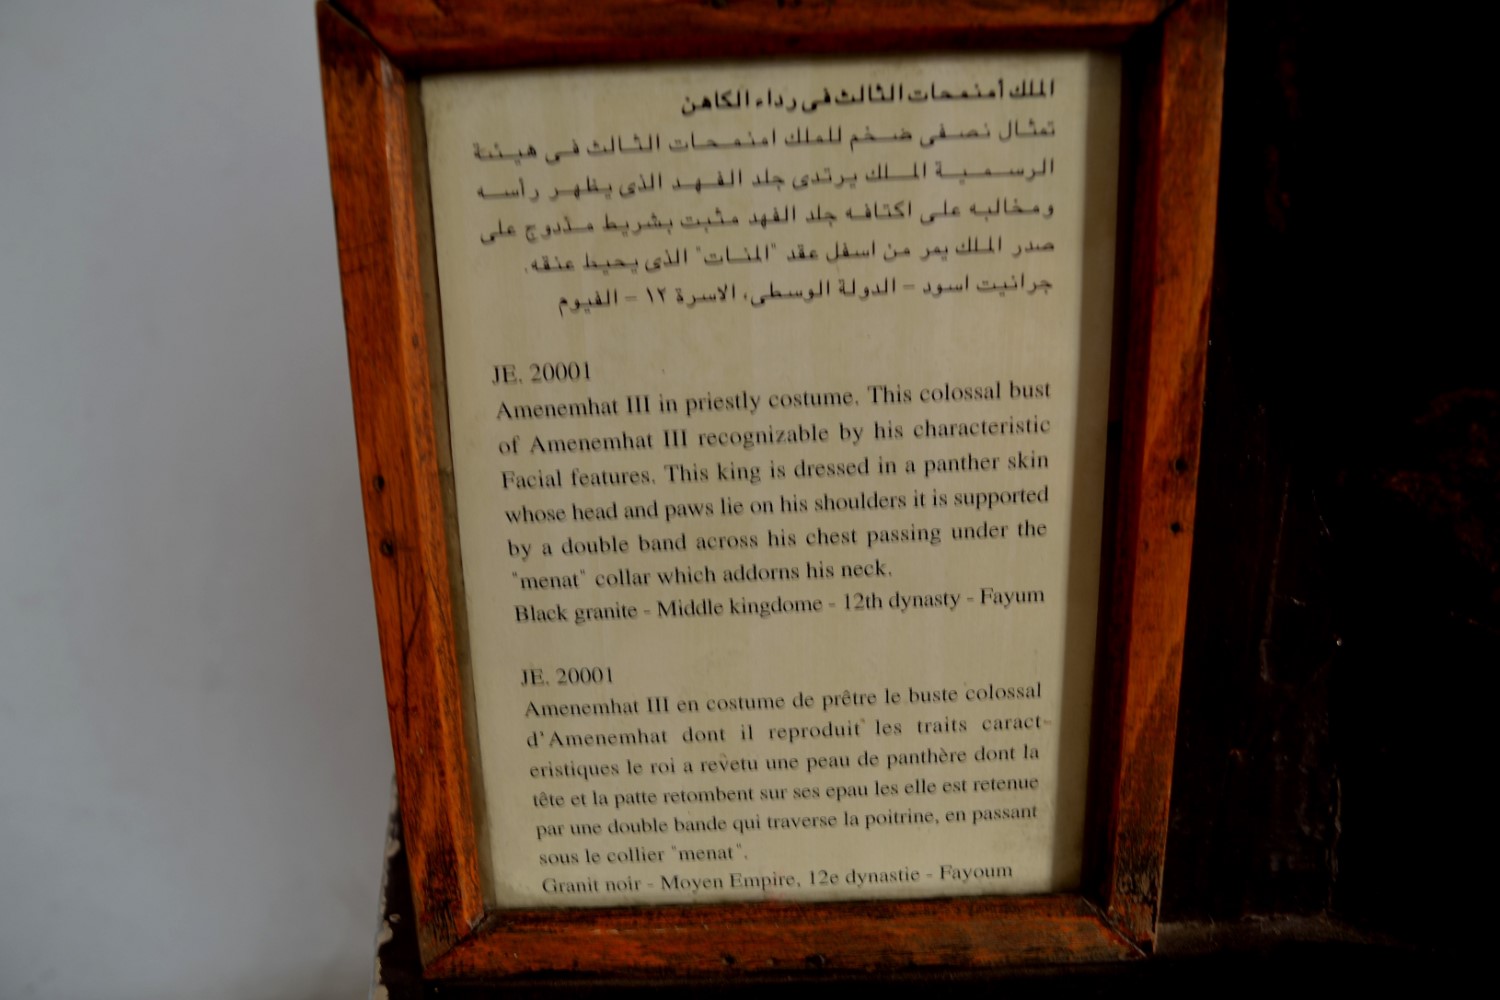 الملك أمنمحات الثالث فى رداء الكاهن
تمثال نصفى ضخم للملك امنمحات الثالث فى هيئتة
الرسمية الملك يرتدى جلد الفهد الذى يظهر رأسه
ومخالبه على اكتافه جلد الفهد مثبت بشريط مذدوج على
صدر الملك يمر من اسفل عقد "المنات" الذى يحيط عنقه.
جرانيت اسود - الدولة الوسطى، الاسرة ١٢ - الفيوم
JE. 20001
Amenemhat III in priestly costume. This colossal bust
of Amenemhat III recognizable by his characteristic
Facial features. This king is dressed in a panther skin
whose head and paws lie on his shoulders it is supported
by a double band across his chest passing under the
"menat" collar which addorns his neck.
Black granite - Middle kingdome - 12th dynasty - Fayum
JE. 20001
Amenemhat III en costume de prêtre le buste colossal
d'Amenemhat dont il reproduit les traits caract-
eristiques le roi a revetu une peau de panthère dont la
tête et la patte retombent sur ses epau les elle est retenue
par une double bande qui traverse la poitrine, en passant
sous le collier "menat".
Granit noir - Moyen Empire, 12e dynastie - Fayoum